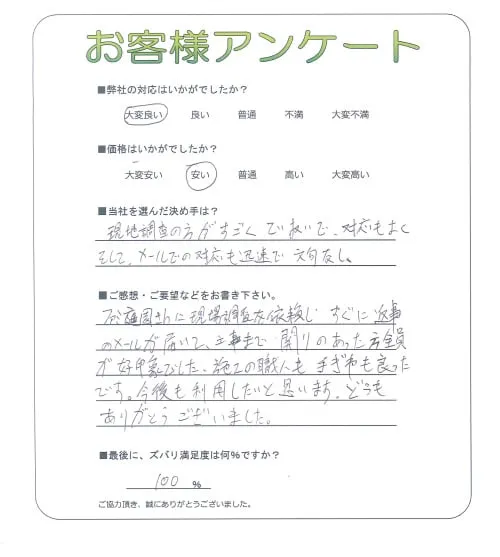 お客様アンケート
■弊社の対応はいかがでしたか?
大変良い 良い 普通 不満 大変不満
■価格はいかがでしたか?
大変安い 安い 普通 高い 大変高い
■当社を選んだ決め手は?
現地調査の方がすごくていねいで、対応もよく
そして、メールでの対応も迅速で文句なし。
■ご感想・ご要望などをお書き下さい。
さんに現場調査を依頼しすぐに返事
のメールが届いて、工事まで関りのあった方全員
が好印象でした、施工の職人も手ぎわも良った
です。今後も利用したいと思います、どうも
ありがとうございました。
■最後に、ズバリ満足度は何%ですか?
100 %
ご協力頂き、誠にありがとうございました。